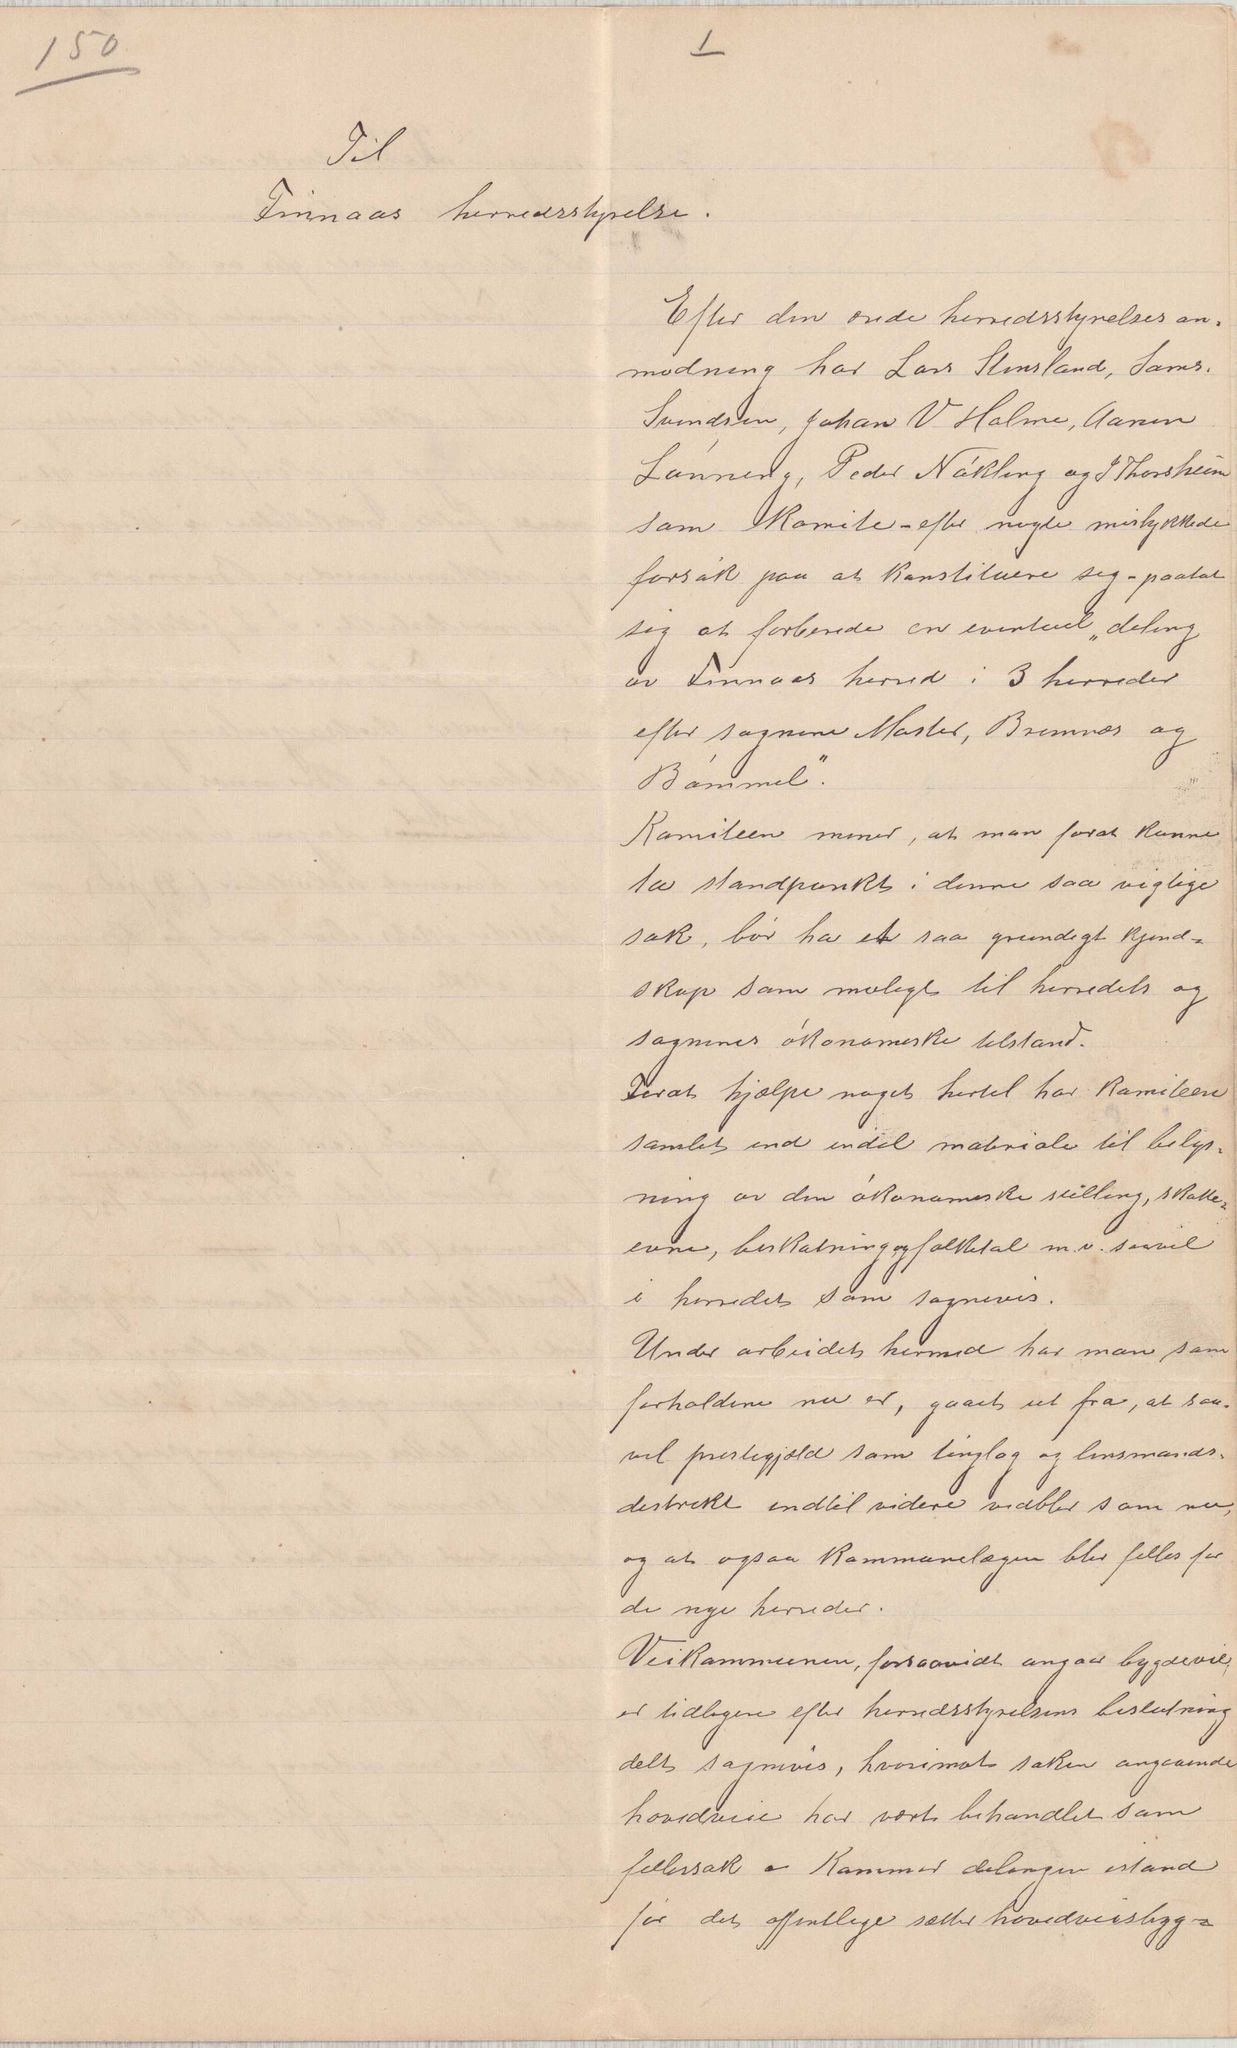 150
1
Til
Finnaas herredsstyrelse.
Efter den ærede herredsstyrelses an-
modning har Lars Stensland, Sams.
Svendsen, Johan V Holme, Aanen
Lönning, Peder Nökling og J Thorsheim
som komite - efter nogle mislykkede
forsök paa at konstituere seg - paatat
sig at forberede en eventuel "deling
av Finnaas herred i 3 herreder
efter sognene Moster, Bremnes og
Bömmel".
Komiteen mener, at man forat kunne
ta standpunkt i denne saa vigtige
sak, bör ha et saa grundigt kjend-
skap som muligt til herredets og
sognenes ökonomiske tilstand.
Forat hjælpe noget hertil har komiteen
samlet ind endel materiale til belys-
ning av den ökonomiske stilling, skatte-
evne, beskatning og folketal m.v. saavel
i herredet som sognevis.
Under arbeidet hermed har man, som
forholdene nu er, gaaet ut fra, at saa-
vel prestegjeld som tinglag og lensmands-
distrikt indtil videre vedblir som nu,
og at ogsaa kommunelægen blir felles for
de nye herreder.
Veikommunen, forsaavidt angaar bygdeveie,
er tidligere efter herredsstyrelsens beslutning
delt sognevis, hvorimot saken angaaende
hovedveie har vært behandlet som
fellessak - Kommer delingen istand
för det offentlige sætter hovedveisbyg-